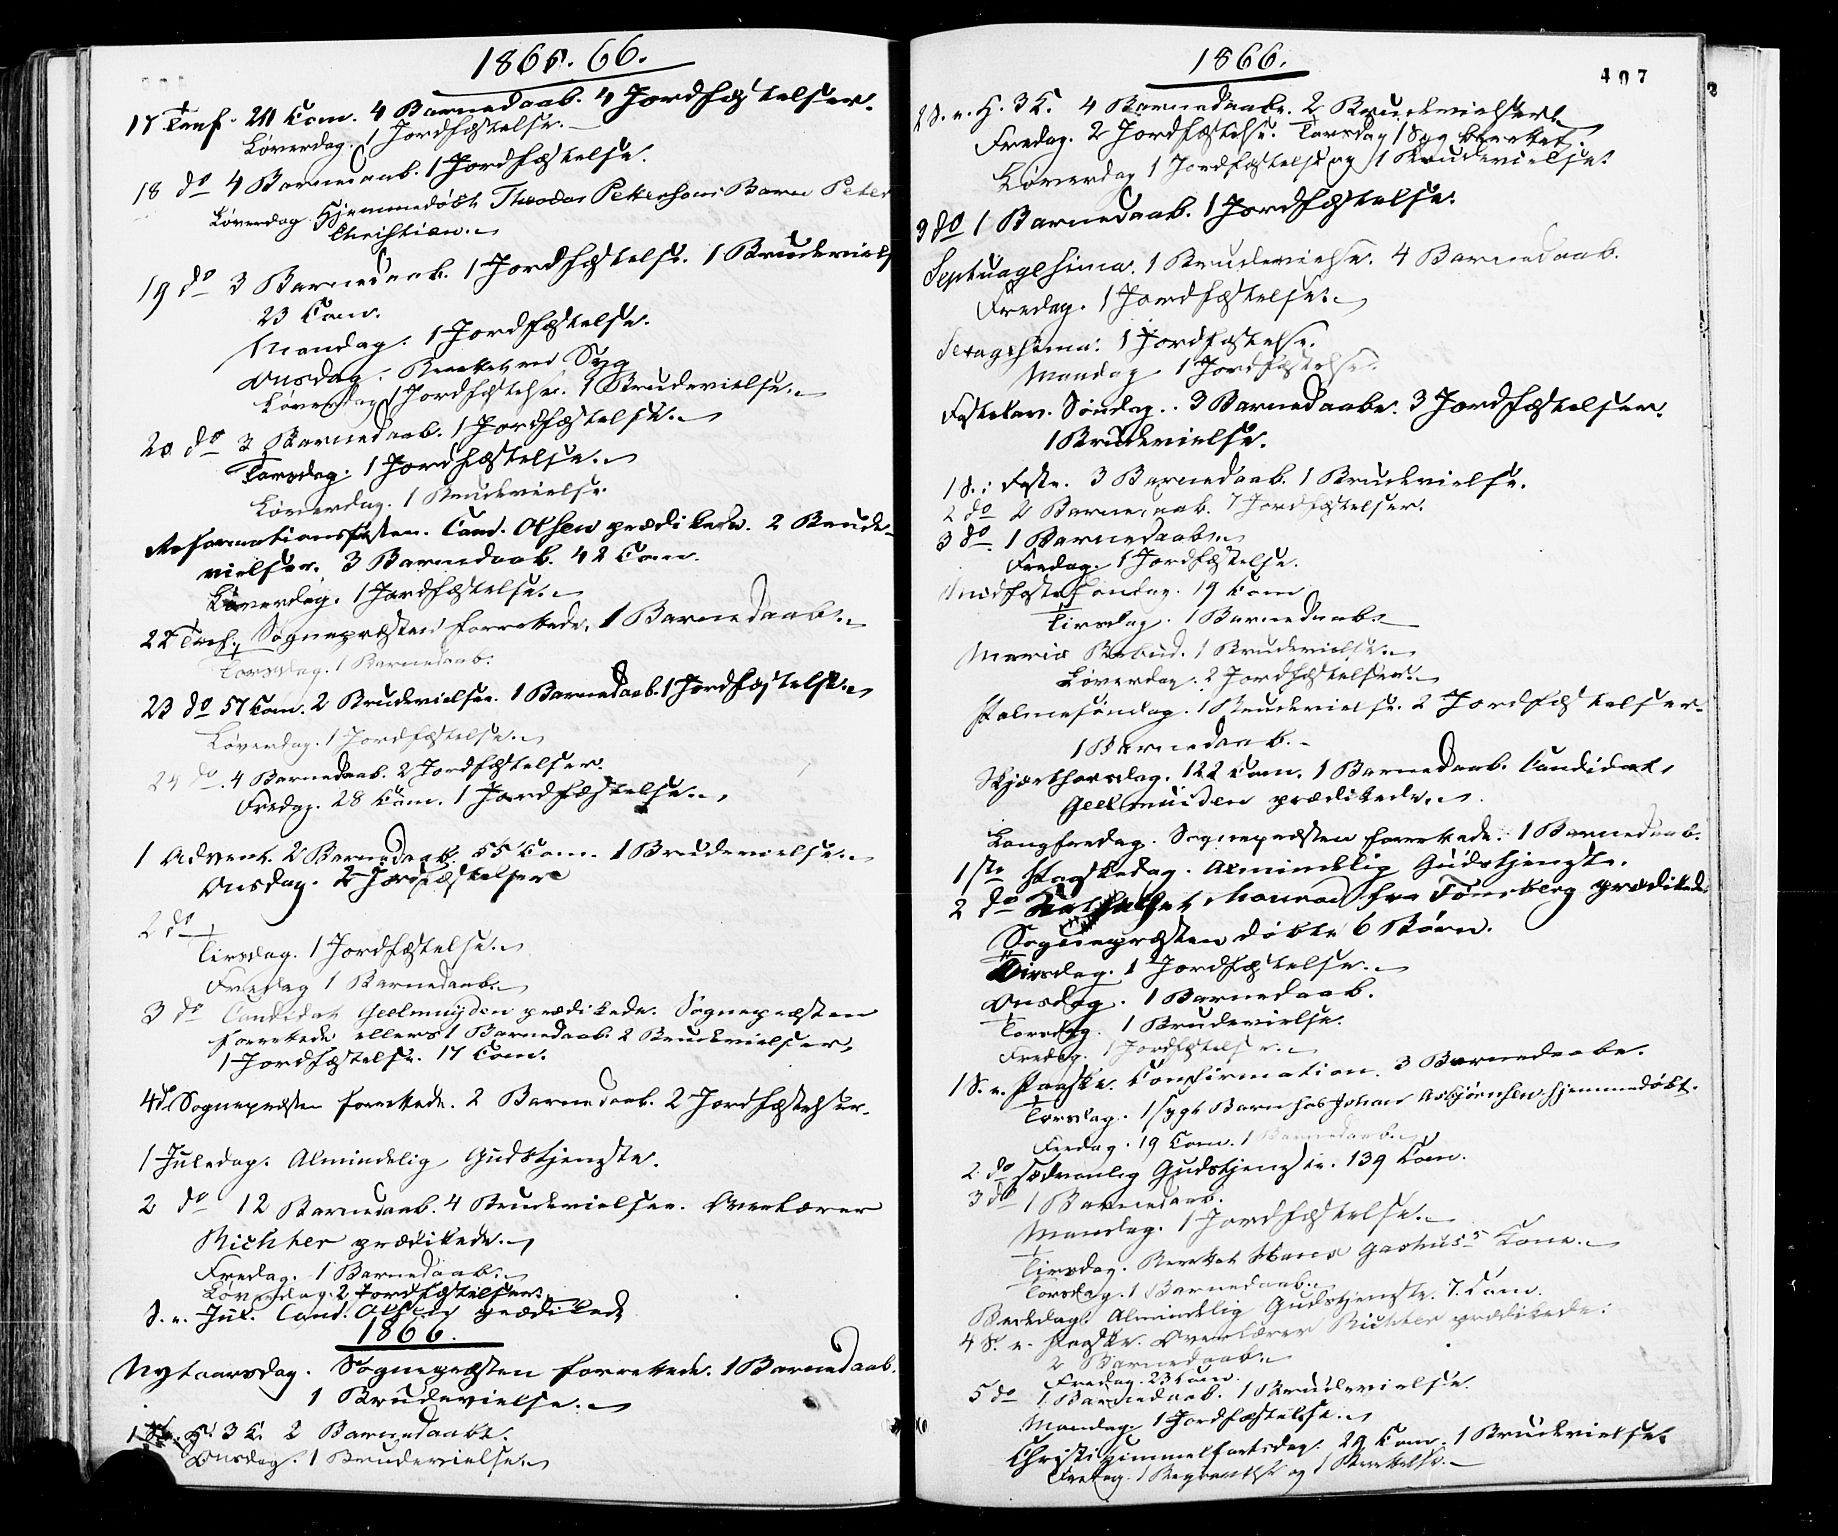 1865. 66.
17 Tref. 20 Com. 4 Barnedaab. 4 Jordfæstelser.
Løverdag. 1 Jordfæstelse.
18 do 4 Barnedaab. 1 Jordfæstelse.
Løverdag. Hjemmedøbt Theodor Pettersens Barn Peter
Christian.
19 do 3 Barnedaab. 1 Jordfæstelse. 1 Brudeviels
23 Com.
Mandag. 1 Jordfæstelse.
Onsdag. Berettet en Syg
Løverdag 1 Jordfæstelse. 1 Brudevielse.
20 do 3 Barnedaab. 1 Jordfæstelse.
Torsdag. 1 Jordfæstelse.
Løverdag. 1 Brudevielse.
Reformationsfesten. Cand. Olsen prædikede. 2 Brude-
vielser. 3 Barnedaab. 42 Com.
Løverdag. 1 Jordfæstelse.
22 Tref. Sognepræsten forrettede. 1 Barnedaab.
Torsdag. 1 Barnedaab.
23 do 57 Com. 2 Brudevielser. 1 Barnedaab. 1 Jordfæstelse.
Løverdag. 1 Jordfæstelse.
24 do. 4 Barnedaab. 2 Jordfæstelser.
Fredag. 28 Com. 1 Jordfæstelse.
1 Advent. 2 Barnedaab. 55 Com. 1 Brudevielse.
Onsdag. 2 Jordfæstelser
2 do
Tirsdag. 1 Jordfæstelse.
Fredag 1 Barnedaab.
3 do Candidat Geelmuyden prædikede. Sognepræsten
forrettede ellers 1 Barnedaab. 2 Brudevielser,
1 Jordfæstelse. 17 Com.
4de Sognepræsten forrettede. 2 Barnedaab. 2 Jordfæstelser.
1 Juledag. Almindelig Gudstjeneste.
2 do 12 Barnedaab. 4 Brudevielser. Overlærer
Richter prædikede.
Fredag. 1 Barnedaab.
Løverdag. 2 Jordfæstelser.
S. e. Jul. Cand. Olsen prædikede
1866.
Nytaarsdag. Sognepræsten forrettede. 1 Barnedaab.
1 Brudevielse.
1 S. e. H. 3 K. 2 Barnedaab.
Onsdag. 1 Brudevielse.
1866.
407
2 S. e. H. 3 K. 4 Barnedaab. 2 Brudevielser.
Fredag. 2 Jordfæstelse. Torsdag 1 Syg berettet.
Løverdag 1 Jordfæstelse og 1 Brudevielse.
3 do 1 Barnedaab. 1 Jordfæstelse.
Septuagesima. 1 Brudevielse. 4 Barnedaab.
Fredag. 1 Jordfæstelse.
Sexagesima. 1 Jordfæstelse.
Mandag 1 Jordfæstelse.
Fastelav. Søndag. 3 Barnedaab. 3 Jordfæstelser.
1 Brudevielse.
1 S. i Faste. 3 Barnedaab. 1 Brudevielse.
2 do 2 Barnedaab. 7 Jordfæstelser.
3 do. 1 Barnedaab.
Fredag. 1 Jordfæstelse.
Midfaste Søndag. 19 Com
Tirsdag. 1 Barnedaab.
Mariæ Bebud. 1 Brudevielse.
Løverdag. 2 Jordfæstelser.
Palmesøndag. 1 Brudevielse. 2 Jordfæstelser.
1 Barnedaab.
Skjærthorsdag. 122 Com. 1 Barnedaab. Candidat
Geelmuiden prædikede.
Langfredag. Sognepræsten forrettede. 1 Barnedaab.
1ste Paaskedag. Almindelig Gudstjeneste.
2 do fra Tønsberg prædikede
Sognepræsten døbte 6 Børn.
Tirsdag. 1 Jordfæstelse.
Onsdag. 1 Barnedaab.
Torsdag. 1 Brudevielse.
Fredag. 1 Jordfæstelse.
1 S. e. Paaske. Confirmation. 3 Barnedaab.
Torsdag. 1 sygt Barn hos Johan Asbjørnsen hjemmedøbt.
Fredag. 19 Com. 1 Barnedaab.
2 do sædvanlig Gudstjeneste. 139 Com.
3 do 1 Barnedaab.
Mandag. 1 Jordfæstelse.
Tirsdag. Berettet Hans Kone.
Torsdag. 1 Barnedaab.
Bededag. Almindelig Gudstjeneste. 7 Com.
4 S. e. Paaske. Overlærer Richter prædikede.
2 Barnedaab.
Fredag. 23 Com.
5 do 1 Barnedaab. 1 Brudevielse.
Mandag. 1 Jordfæstelse.
Christi Himmelfartsdag. 29 Com. 1 Brudevielse
Fredag. 1 og 1